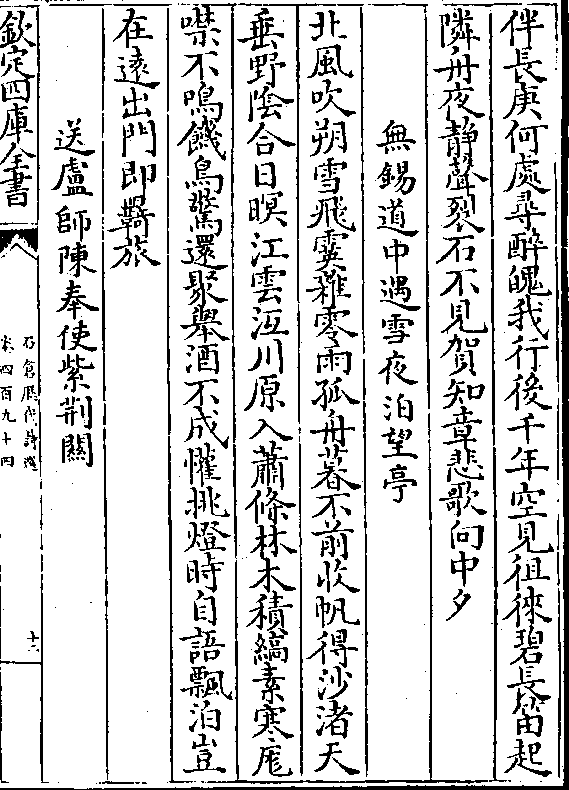 伴長庚何處尋醉魄我行後千年空見徂徠碧長笛起
隣舟夜静聲裂石不見賀知章悲歌向中夕
無錫道中遇雪夜泊望亭
北風吹朔雪飛霙雜零雨孤舟暮不前收帆得沙渚天
垂野陰合日暝江雲沍川原入蕭條林木積縞素寒尨
噤不鳴饑鳥驚還聚舉酒不成懽挑燈時自語飄泊豈
在逺出門即羇旅
送盧師陳奉使紫荆關
欽定四庫全書
石倉歴代詩選
卷四百九十四
十二